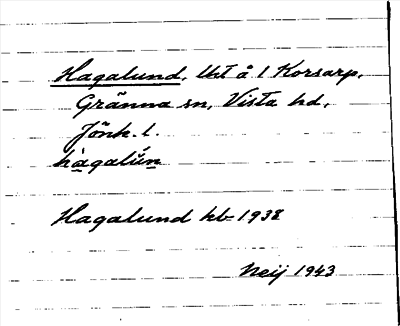 Hagalund, lht å 1 Korsarp,
Gränna sn, Vista hd,
Jönk. l.
hàgalún
Hagalund kb 1938
Neij 1943